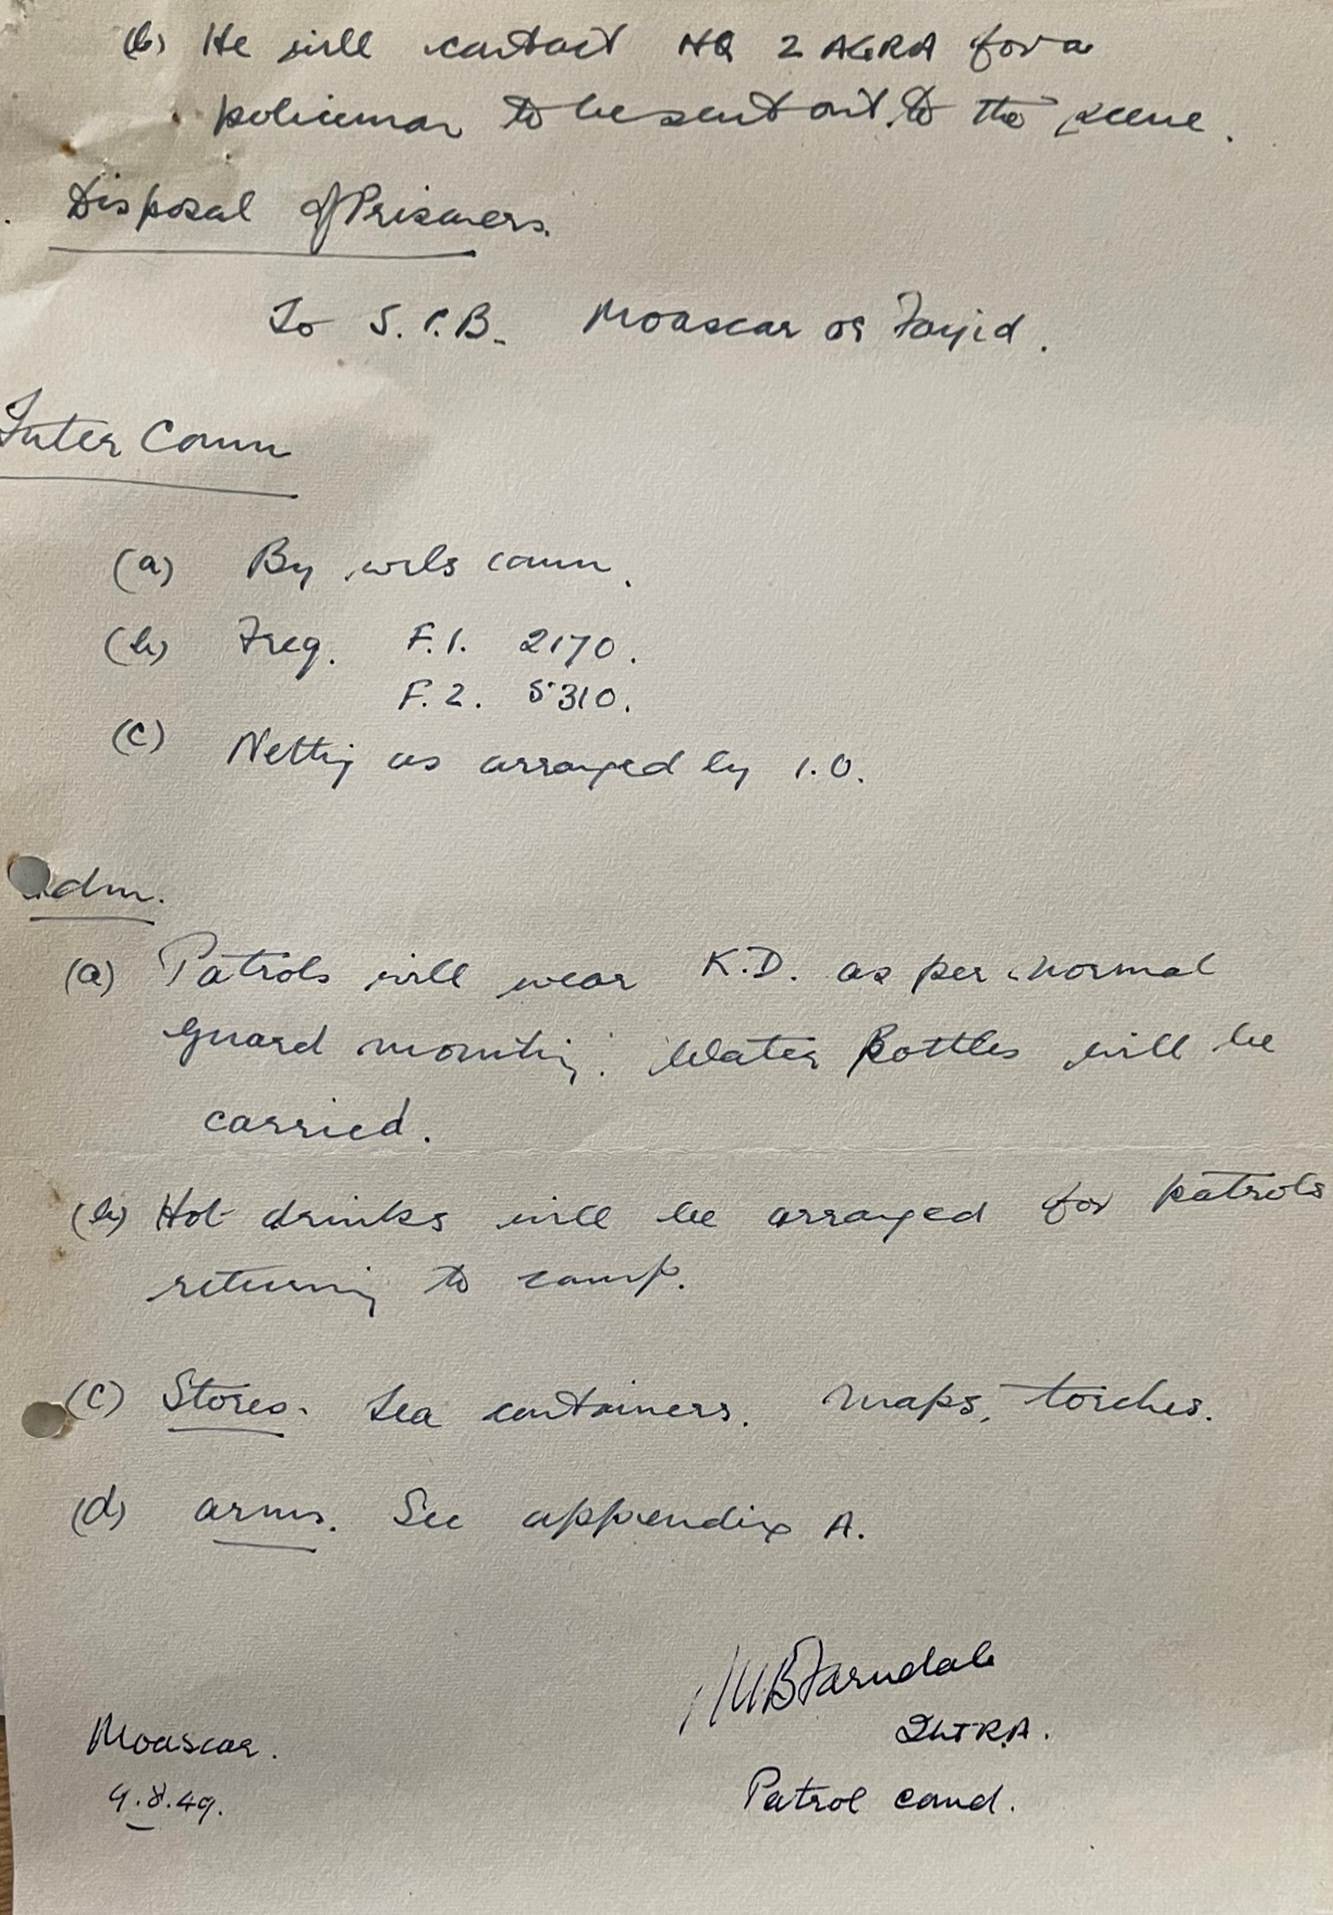 (b) He will contact HQ 2 AGRA for a
policeman to be sent out to the scene.
Disposal of Prisoners.
To S.I.B. Moascar or Fayid.
Inter Comm
(a) By wrls comm.
(b) Freq. F.1. 2170.
F.2. 5310.
(c) Netting as arranged by I.O.
Adm.
(a) Patrols will wear K.D. as per normal
guard mounting. Water Bottles will be
carried.
(b) Hot drinks will be arranged for patrols
returning to camp.
(c) Stores. Tea containers. Maps, torches.
(d) arms. See appendix A.
Farndale
2Lt R.A.
Moascar.
Patrol comd.
9.8.49.